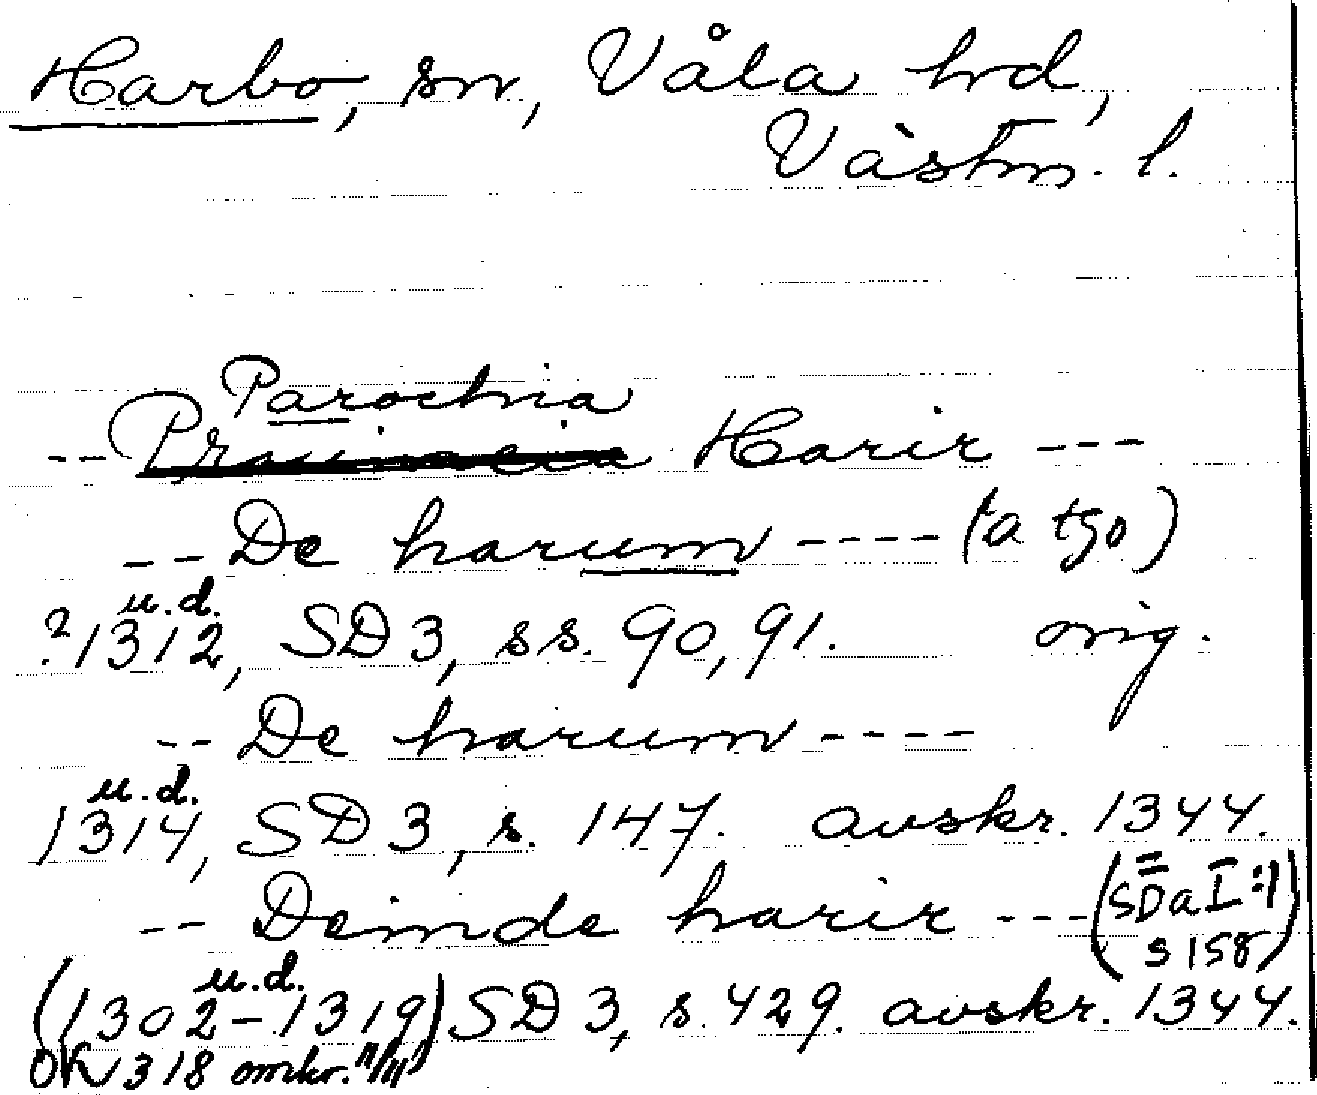 Harbo, sn, Våla hrd,
Västm. l.
Parochia
-- Prouincia Harir ---
-- De harum ---- (ta tgo)
u.d.
?1312, SD 3, ss. 90, 91. orig.
-- De harum ----
u.d.
1314, SD 3, s. 147. avskr. 1344.
-- Deinde harir --- (SDa I:1
s 158)
u.d.
(1302-1319) SD 3, s. 429. avskr. 1344.
318 omkr.